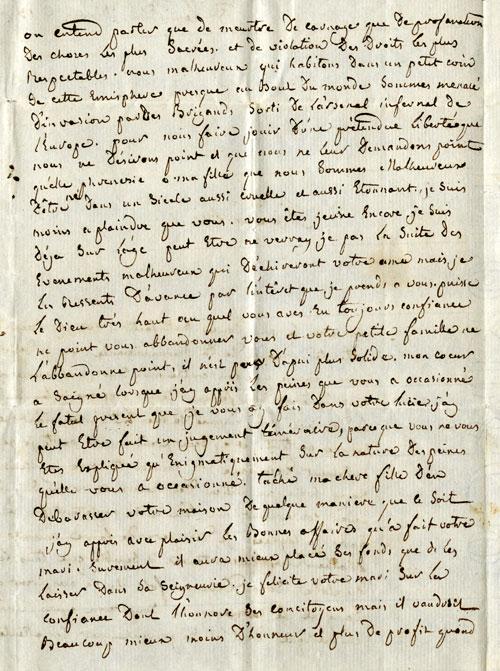 on entend parler que de meurtre de carnage que de profanation
des choses les plus Sacrées. et de violation Des Droits les plus
respectables. nous malheureux qui habitons dans un petit coin
de cette Emisphere presque au Bout Du monde Sommes menacé
D'invasion par des Brigands Sorti de l'arsenal infernal de
l'Europe. pour nous faire jouir D'une pretendue liberté que
nous ne Desirons point et que nous ne leur Demandons point
quelle phrenesie o ma fille que nous Sommes Malheureux
D'être né Dans un Siecle aussi cruelle et aussi Etonnant. je Suis
moins a plaindre que vous. vous êtes jeune Encore je Suis
Deja Sur l'age peut Etre ne verray je pas la Suite Des
Evenements malheureux qui Dechireront votre ame mais je
la Ressents D'avance par l'interêt que je prends a vous. puisse
le Dieu trés haut au quel vous avés Eu toujours confiance
ne point vous abbandonner vous et votre petite famille ne
L'abbandonne point, il n'est D'apui plus Solide. mon coeur
a Saigné lorsque j'ay appris Les peines que vous a occasionné
le fatal present que je vous ay fais Dans votre lucie. j'ay
peut Etre fait un jugement temeraire, parce que vous ne vous
Etes Expliquée qu'Enigmatiquement Sur la nature Des peines
qu'elle vous a occasionné. taché ma chere fille D'en
Debarasser votre maison De quelque maniere que ce Soit
j'ay appris avec plaisir les Bonnes affaires qu'a fait votre
mari. Surement il aura mieux placé Ses fonds que de les
laisser Dans Sa Seigneurie. je felicite votre mari Sur la
confiance Dont l'honnore Ses concitoyens mais il vaudroit
Beaucoup mieux moins D'honneur et plus de profit quand